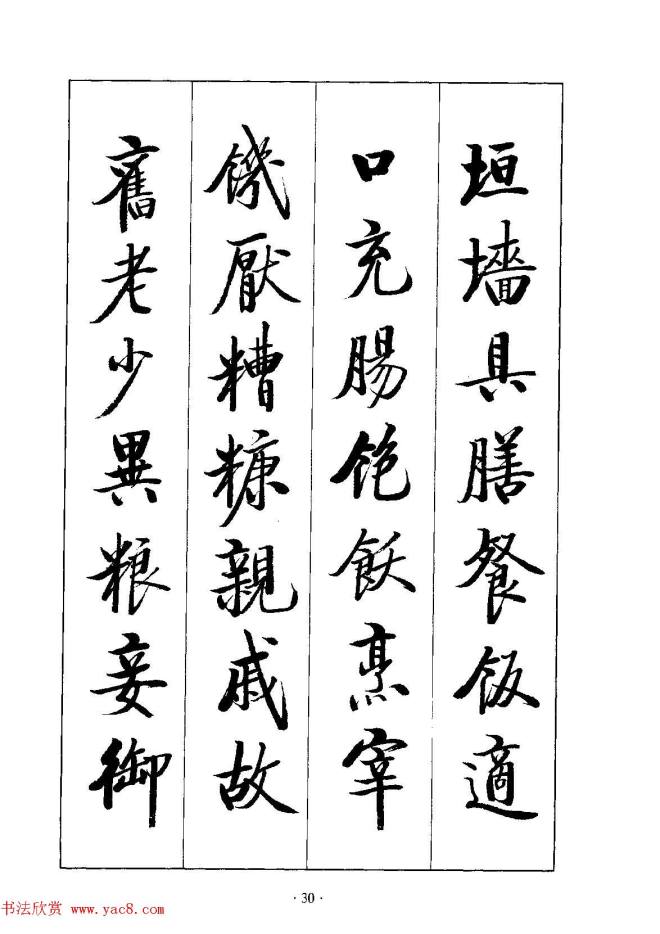 垣墻具膳餐飯適
口充腸飽飫烹宰
饑厭糟糠親戚故
舊老少異粮妾御
· 30 ·
书法欣赏 www.yac8.com